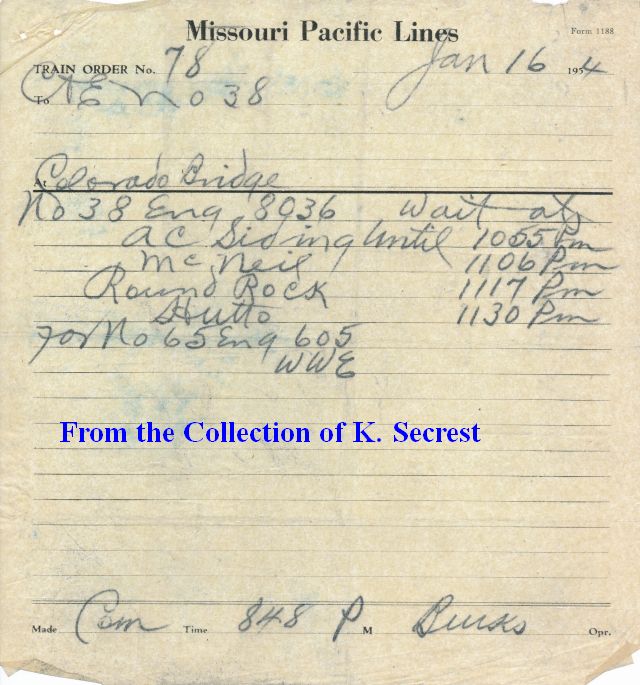 Missouri Pacific Lines
Form 1188
TRAIN ORDER No. 78 Jan 16 1954
To C&E No 38
At Colorado Bridge
No 38 Eng 8036 Wait at
AC Siding Until 1055 Pm
McNeil 1106 Pm
Round Rock 1117 Pm
Hutto 1130 Pm
For No 65 Eng 605
WWE
From the Collection of K. Secrest
Made Com Time 848 P M Burks Opr.